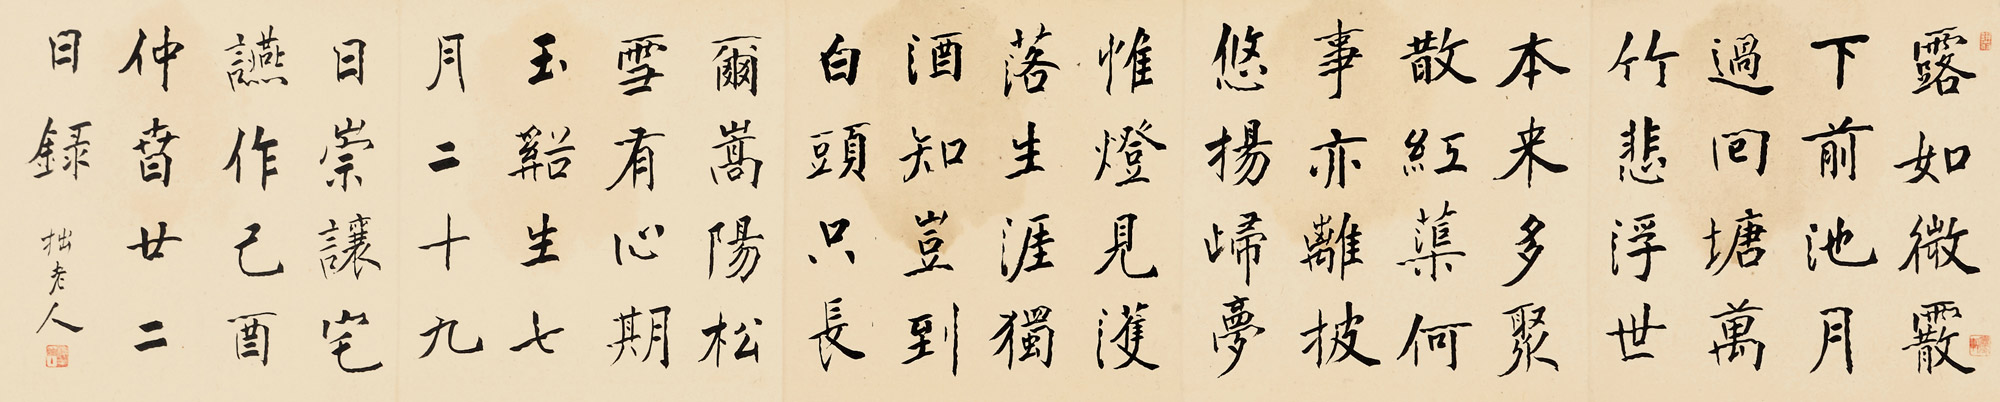 露如微霰
下前池月
過回塘萬
竹悲浮世
本来多聚
散紅蕖何
事亦離披
悠揚歸夢
惟燈見濩
落生涯獨
酒知豈到
白頭只長
爾嵩陽松
雪有心期
玉谿生七
月二十九
日崇讓宅
讌作己酉
仲旾廿二
日録
拙老人